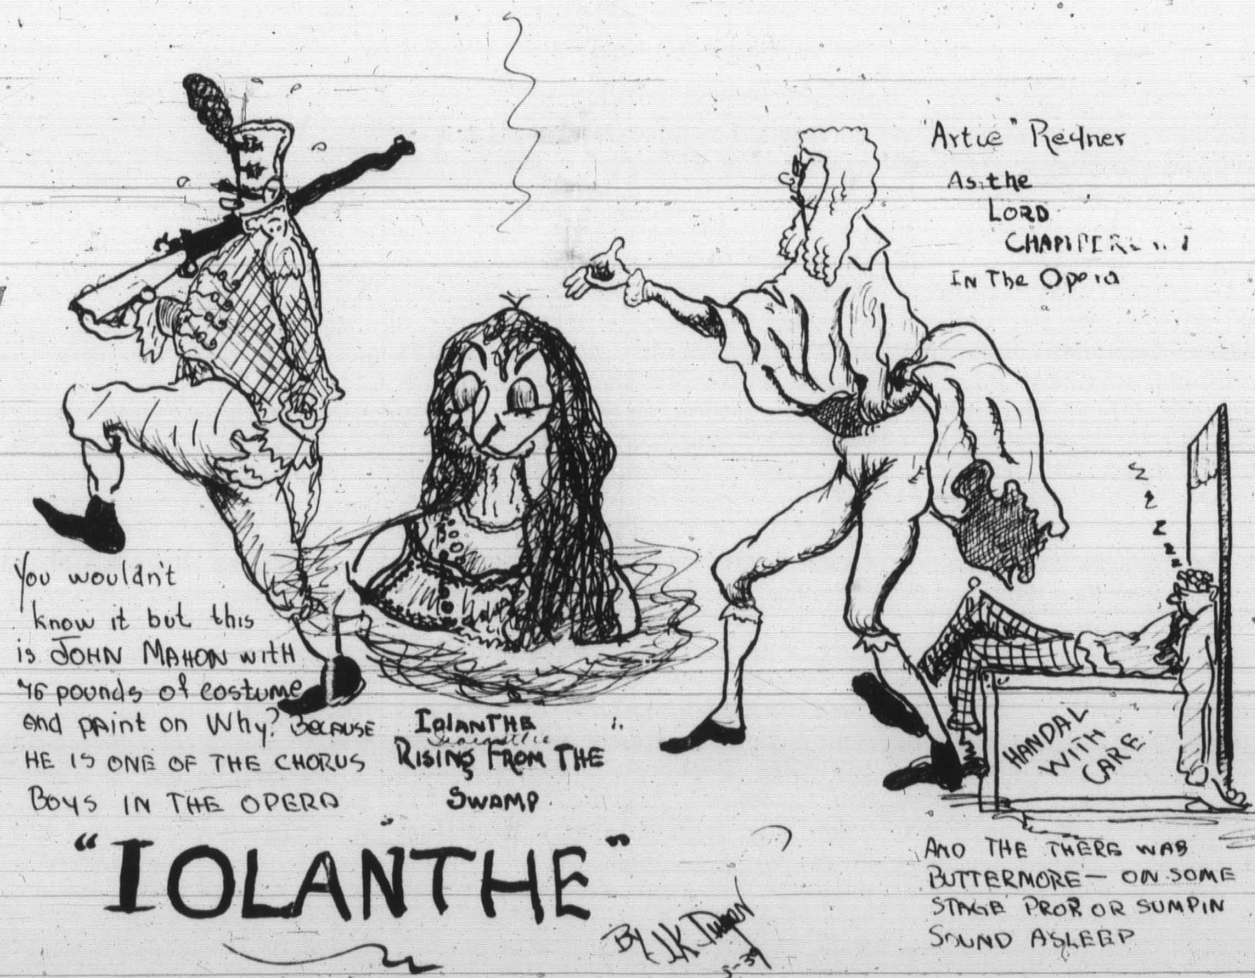 "Artie" Redner
As the
LORD
In The Opera
You wouldn't
know it but this
is JOHN MAHON with
76 pounds of costume
and paint on Why? Because
HE IS ONE OF THE CHORUS
BOYS IN THE OPERA
IOLANTHE
RISING FROM THE
SWAMP
"IOLANTHE"
BY J.K.
5-39
z z z z z
HANDAL
WITH
CARE
AND THE THERE WAS
BUTTERMORE — ON SOME
STAGE PROP OR SUMPIN
SOUND ASLEEP